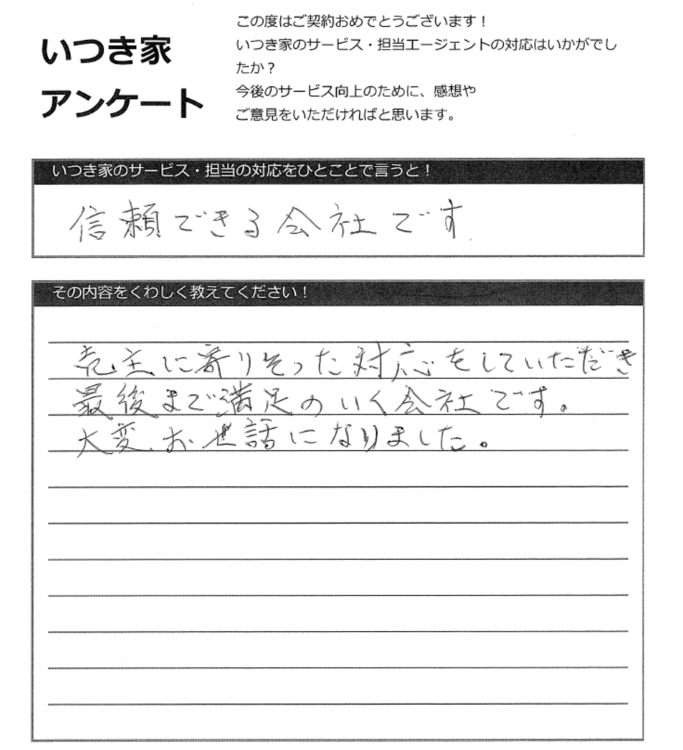 いつき家
アンケート
この度はご契約おめでとうございます！
いつき家のサービス・担当エージェントの対応はいかがでし
たか？
今後のサービス向上のために、感想や
ご意見をいただければと思います。
いつき家のサービス・担当の対応をひとことで言うと！
信頼できる会社です
その内容をくわしく教えてください！
売主に寄りそった対応をしていただき
最後まで満足のいく会社です。
大変、お世話になりました。